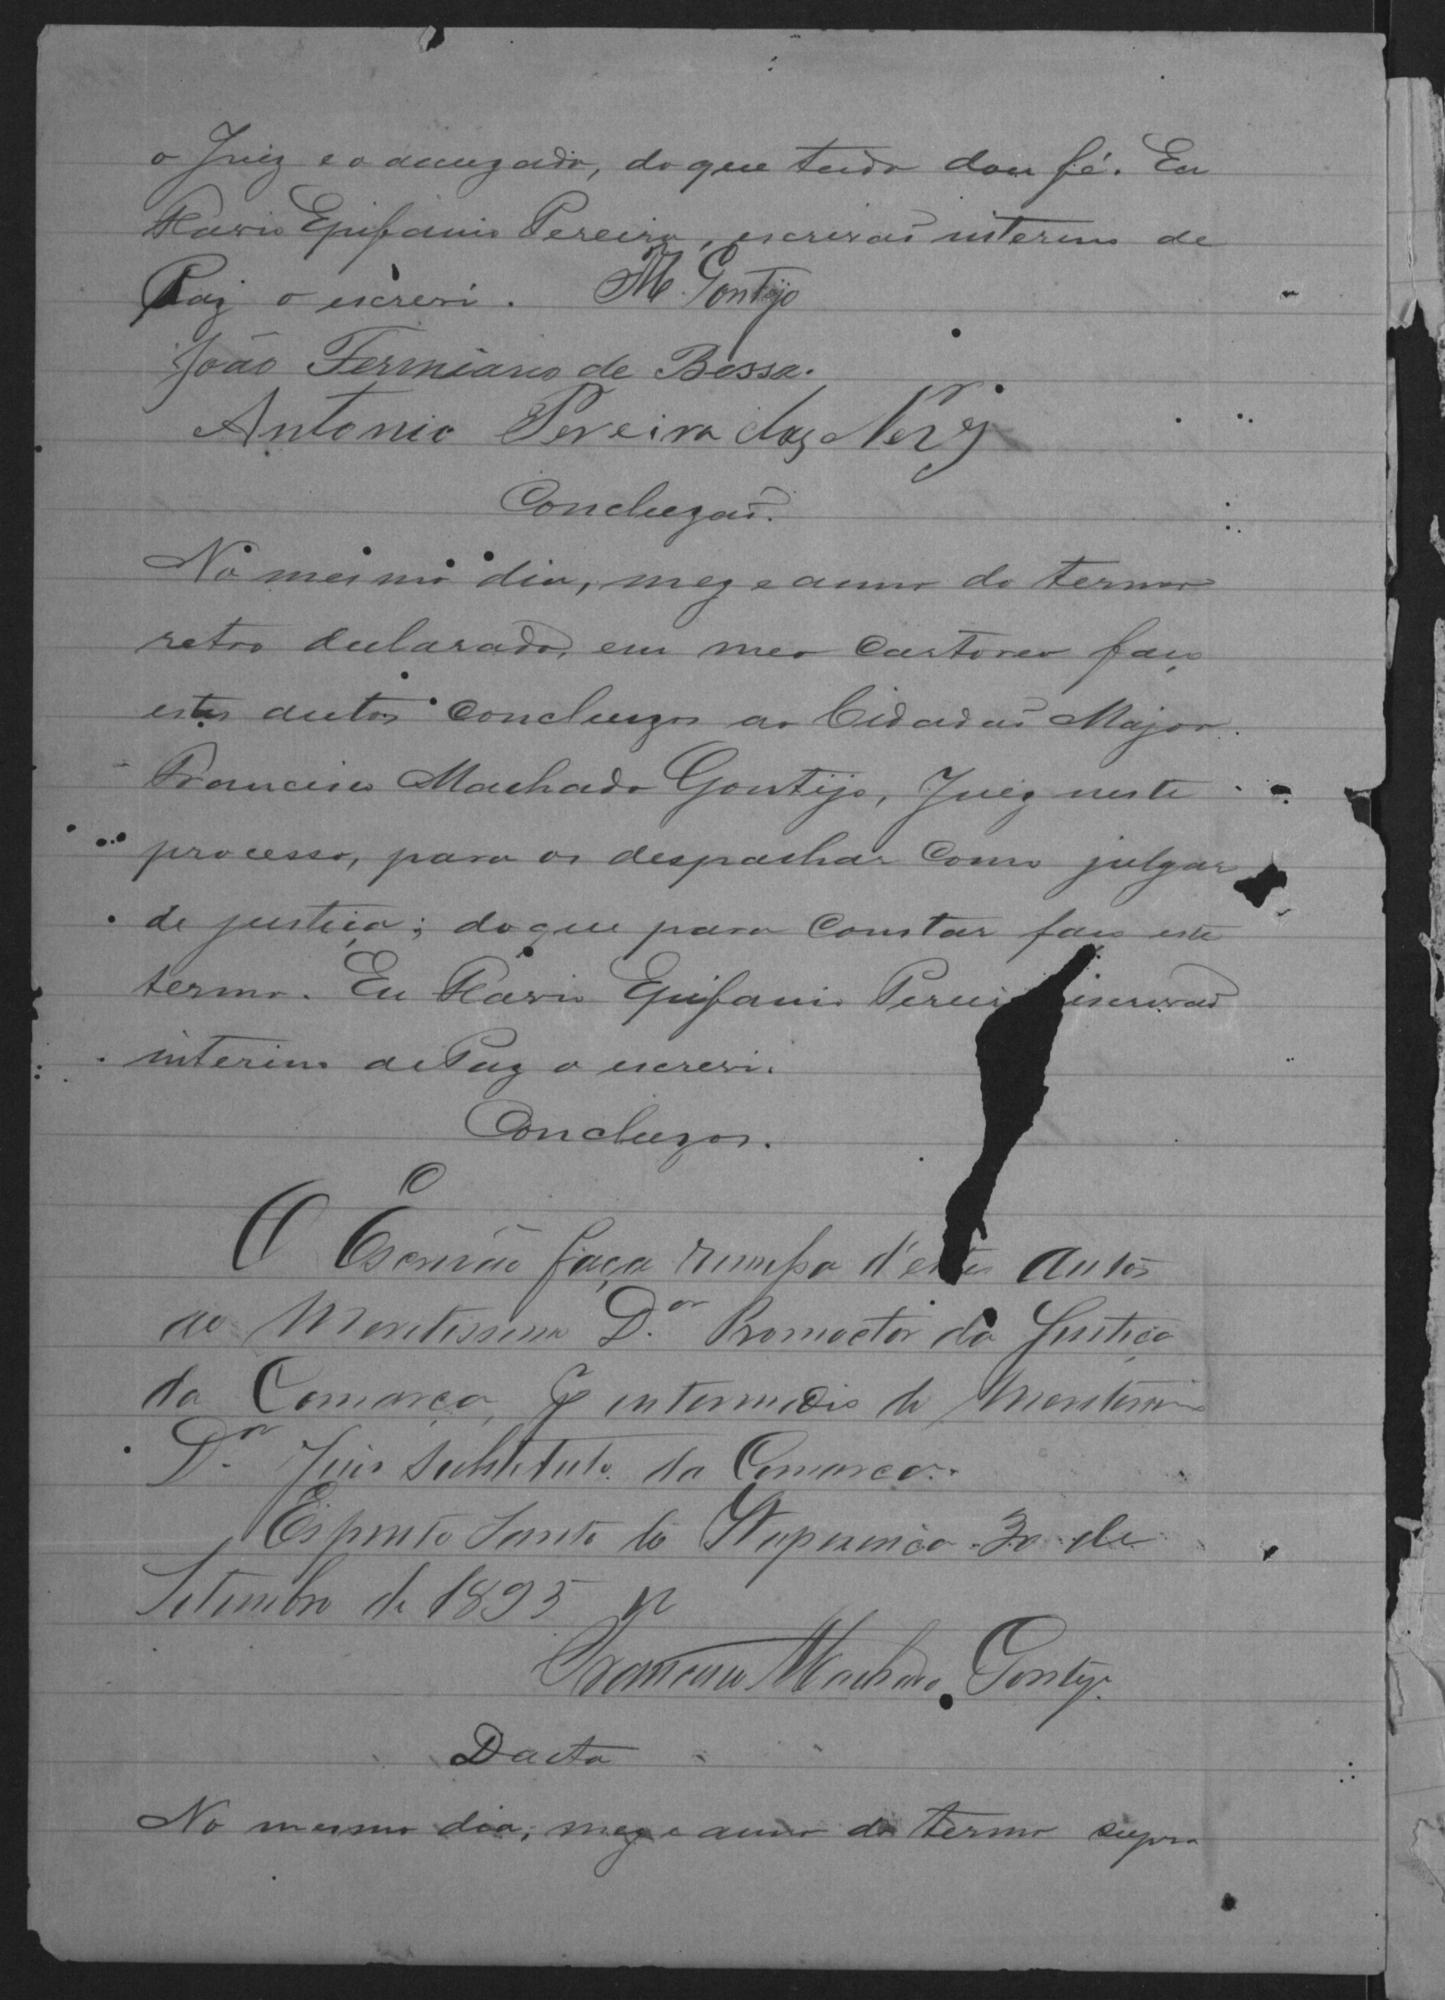 o Juiz e o acuzado, do que tudo dou fé. Eu
Flavio Epifanio Pereira, escrivaõ interino de
Paz o escrevi. M. Gontijo
João Fermiano de Bessa.
Antonio Pereira das Neves
Concluzaõ.
No mesmo dia, mez e anno do termo
retro declarado, em meo Cartoreo faço
estes autos Concluzos ao Cidadaõ Major
Francisco Machado Gontijo, Juiz neste
processo, para os despachar como julgar
de justiça; do que para constar faço este
termo. Eu Flavio Epifanio Pereira escrivaõ
interino de Paz o escrevi.
Concluzos.
O Escrivão faça remessa d'estes autos
ao Meretissimo D.or Promoctor da Justiça
da Comarca, p intermedio do Meretissimo
D.or Juis Substituto da Comarca.
Espirito Santo do Itapecirica 30 de
Setembro de 1895
Francisco Machado Gontijo
Dacta
No mesmo dia, mez e anno do termo supra